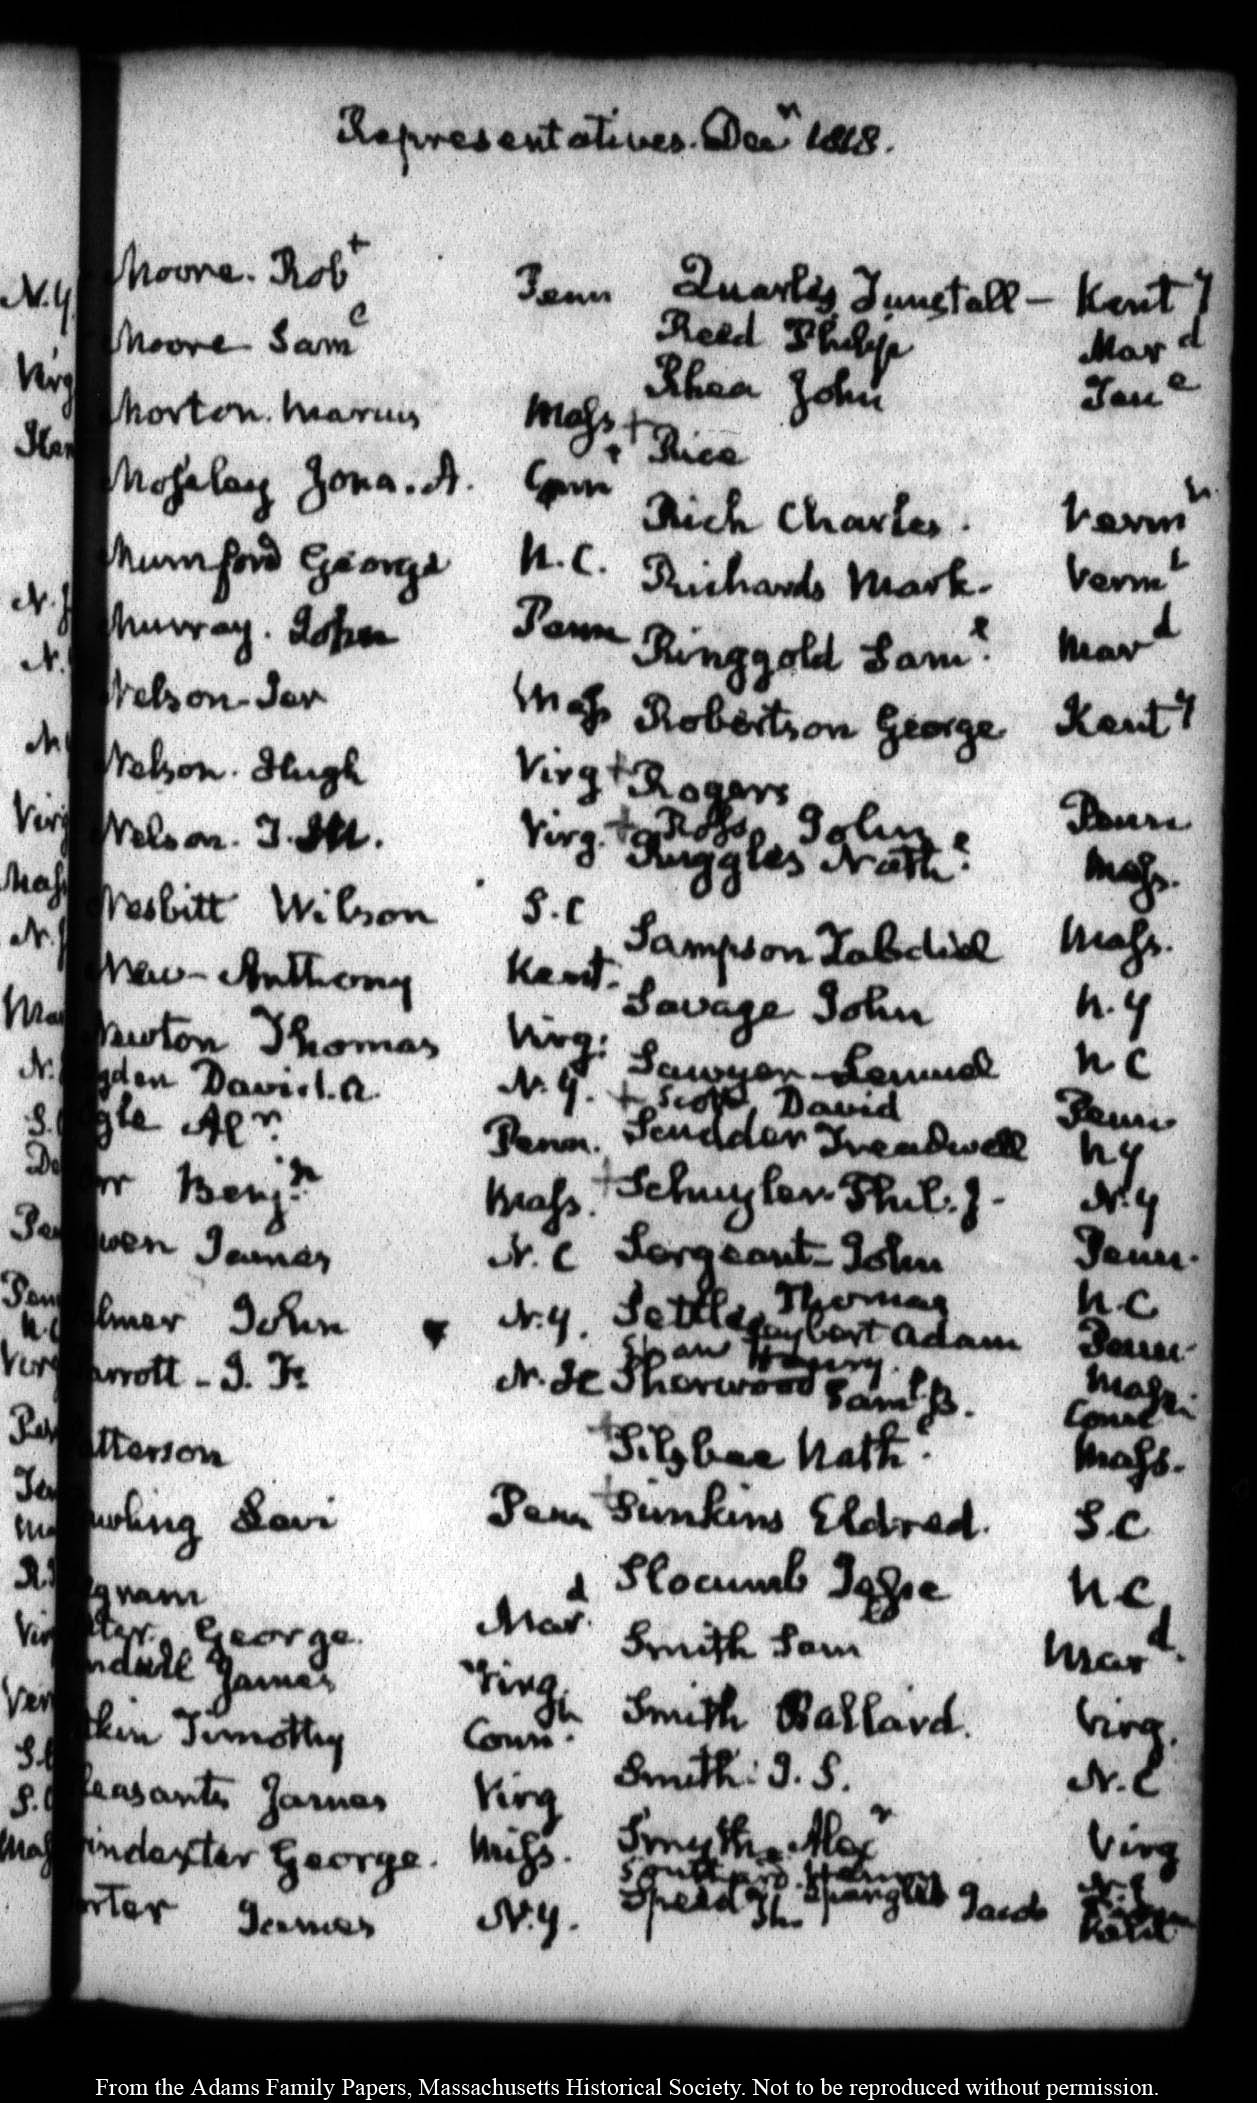 Representatives. Decr 1818.
Moore. Robt Penn
Moore Saml
Morton. Marcus Mass
Moseley Jona. A. Conn
Mumford George N.C.
Murray. John Penn
Nelson. Jer Mass
Nelson. Hugh Virg
Nelson. T. M. Virg.
Nesbitt Wilson S.C
New - Anthony Kent.
Newton Thomas Virg:
gden David. A. N.Y.
gle Alr. Penn.
rr Benjn Mass.
wen James N.C
lmer John N.Y.
arrott - J. F. N.H
atterson
awling Levi Penn
gram
ter. George Mard
ndall James Virg.
kin Timothy Connt.
leasants James Virg
indexter George. Miss.
rter James N.Y.
Quarles, Tunstall - Kenty
Reed Philip Mard
Rhea John Tene
+ Rice
Rich Charles. Vermt.
Richards Mark. Vermt
Ringgold Saml. Mard
Robertson George Kenty
+ Rogers
+ Ross, John Penn
Ruggles Nathl. Mass.
Sampson Zabdiel Mass.
Savage John N.Y
Sawyer Lemuel N C
+ Scott, David Penn
Scudder Treadwell N Y
+ Schuyler Phil. J. N.Y
Sergeant - John Penn.
Settle, Thomas N.C
Seybert Adam Penn.
Shaw Henry. Mass.
Sherwood Saml. B. Connt
+ Silsbee Nathl. Mass.
+ Simkins Eldred. S.C
Slocumb Jesse N.C.
Smith Sam Mard.
Smith Ballard. Virg.
Smith. J. S. N.C
Smyth. Alexr Virg
Southard. Henry N.J
Spangler Jacob Penn
Speed Th. Kent
N.Y.
Virg
N.J
N.
Virg
Mass
N.J
N.
S.C
De
Pen
Penn
N.C
Virg
Pen
Ten
Ma
R.I
Vir
Ver
S.C
S.C
Mass